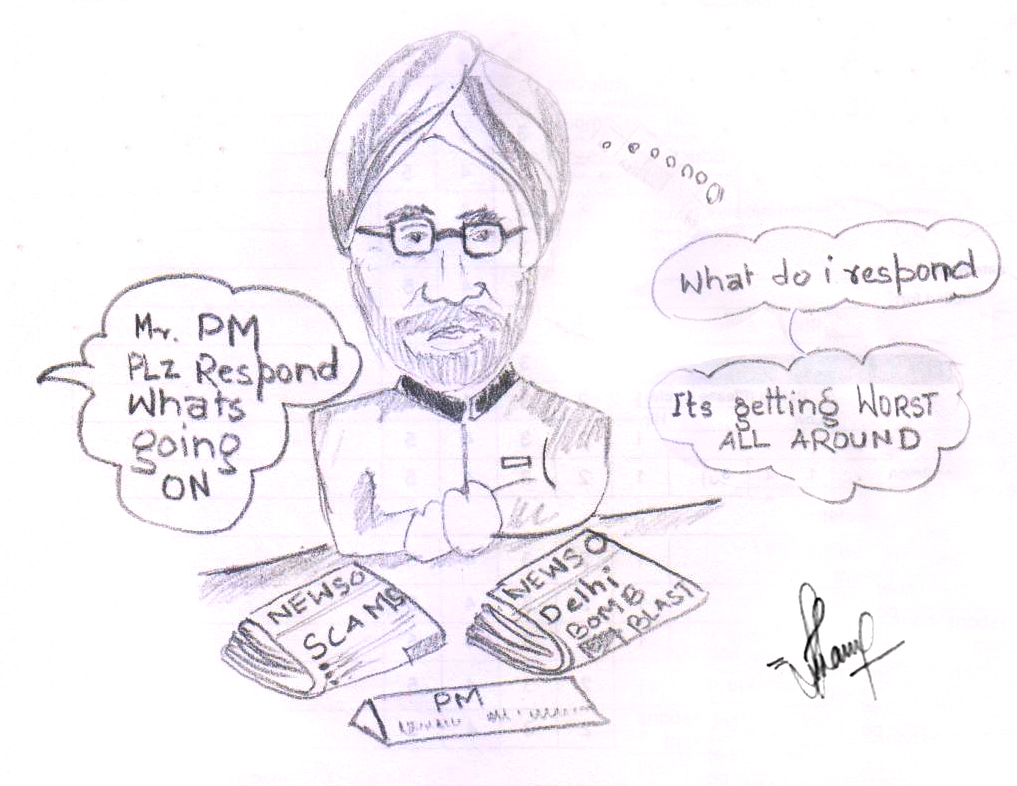 Mr. PM
PLZ Respond
Whats
going
ON
What do i respond
Its getting WORST
ALL AROUND
NEWSO
SCAMS
NEWSO
Delhi
BOMB
BLAST
PM